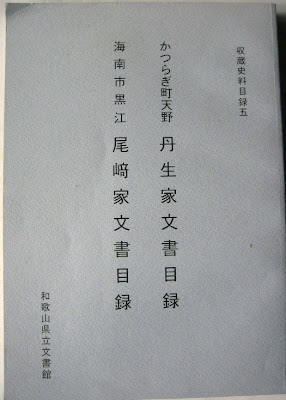 収蔵史料目録五
かつらぎ町天野 丹生家文書目録
海南市黒江 尾﨑家文書目録
和歌山県立文書館